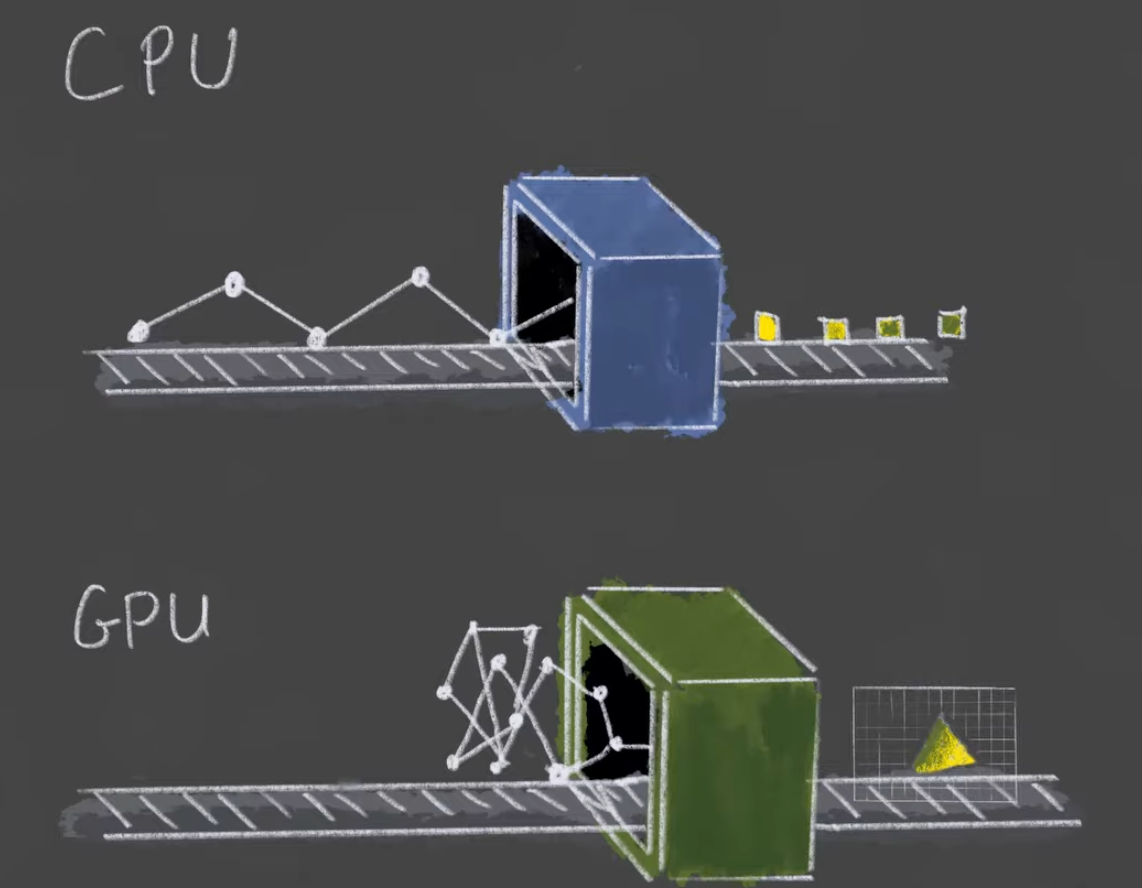 CPU
GPU